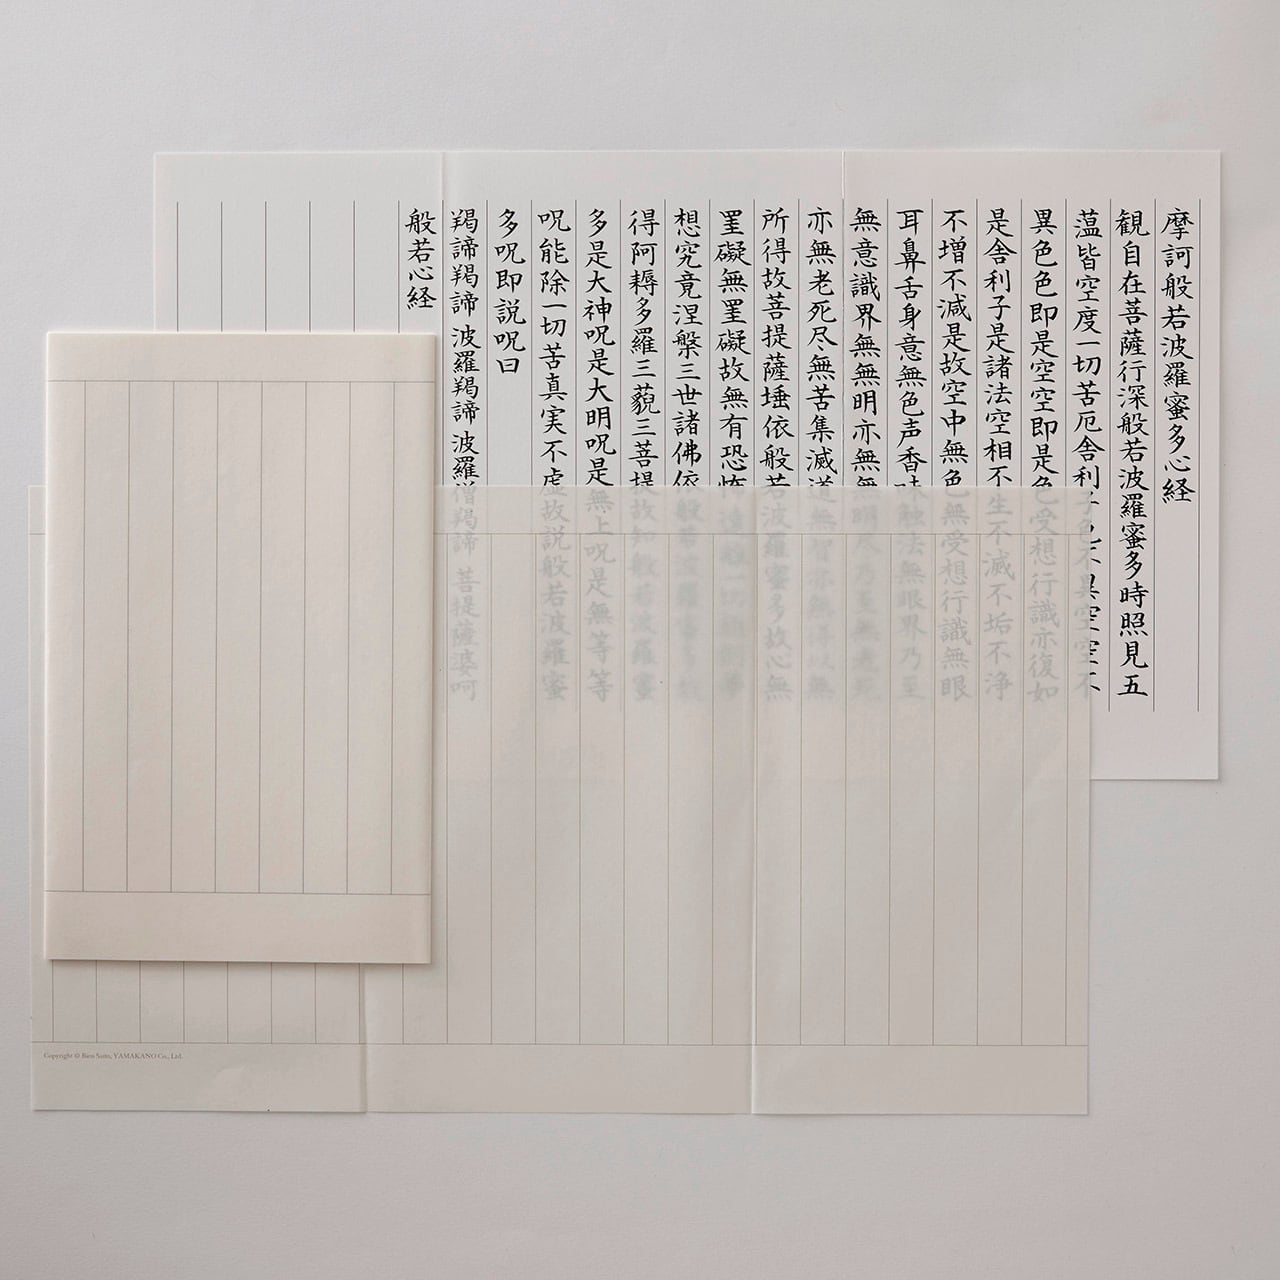 摩訶般若波羅蜜多心経
観自在菩薩行深般若波羅蜜多時照見五
薀皆空度一切苦厄舎利子色不異空空不
異色色即是空空即是色受想行識亦復如
是舎利子是諸法空相不生不滅不垢不浄
不増不減是故空中無色無受想行識無眼
耳鼻舌身意無色声香味触法無眼界乃至
無意識界無無明亦無無明尽乃至無老死
亦無老死尽無苦集滅道無智亦無得以無
所得故菩提薩埵依般若波羅蜜多故心無
罣礙無罣礙故無有恐怖遠離一切顛倒夢
想究竟涅槃三世諸佛依般若波羅蜜多故
得阿耨多羅三藐三菩提故知般若波羅蜜
多是大神呪是大明呪是無上呪是無等等
呪能除一切苦真実不虚故説般若波羅蜜
多呪即説呪曰
羯諦羯諦 波羅羯諦 波羅僧羯諦 菩提薩婆呵
般若心経
Copyright © Bien Saito, YAMAKANO Co., Ltd.